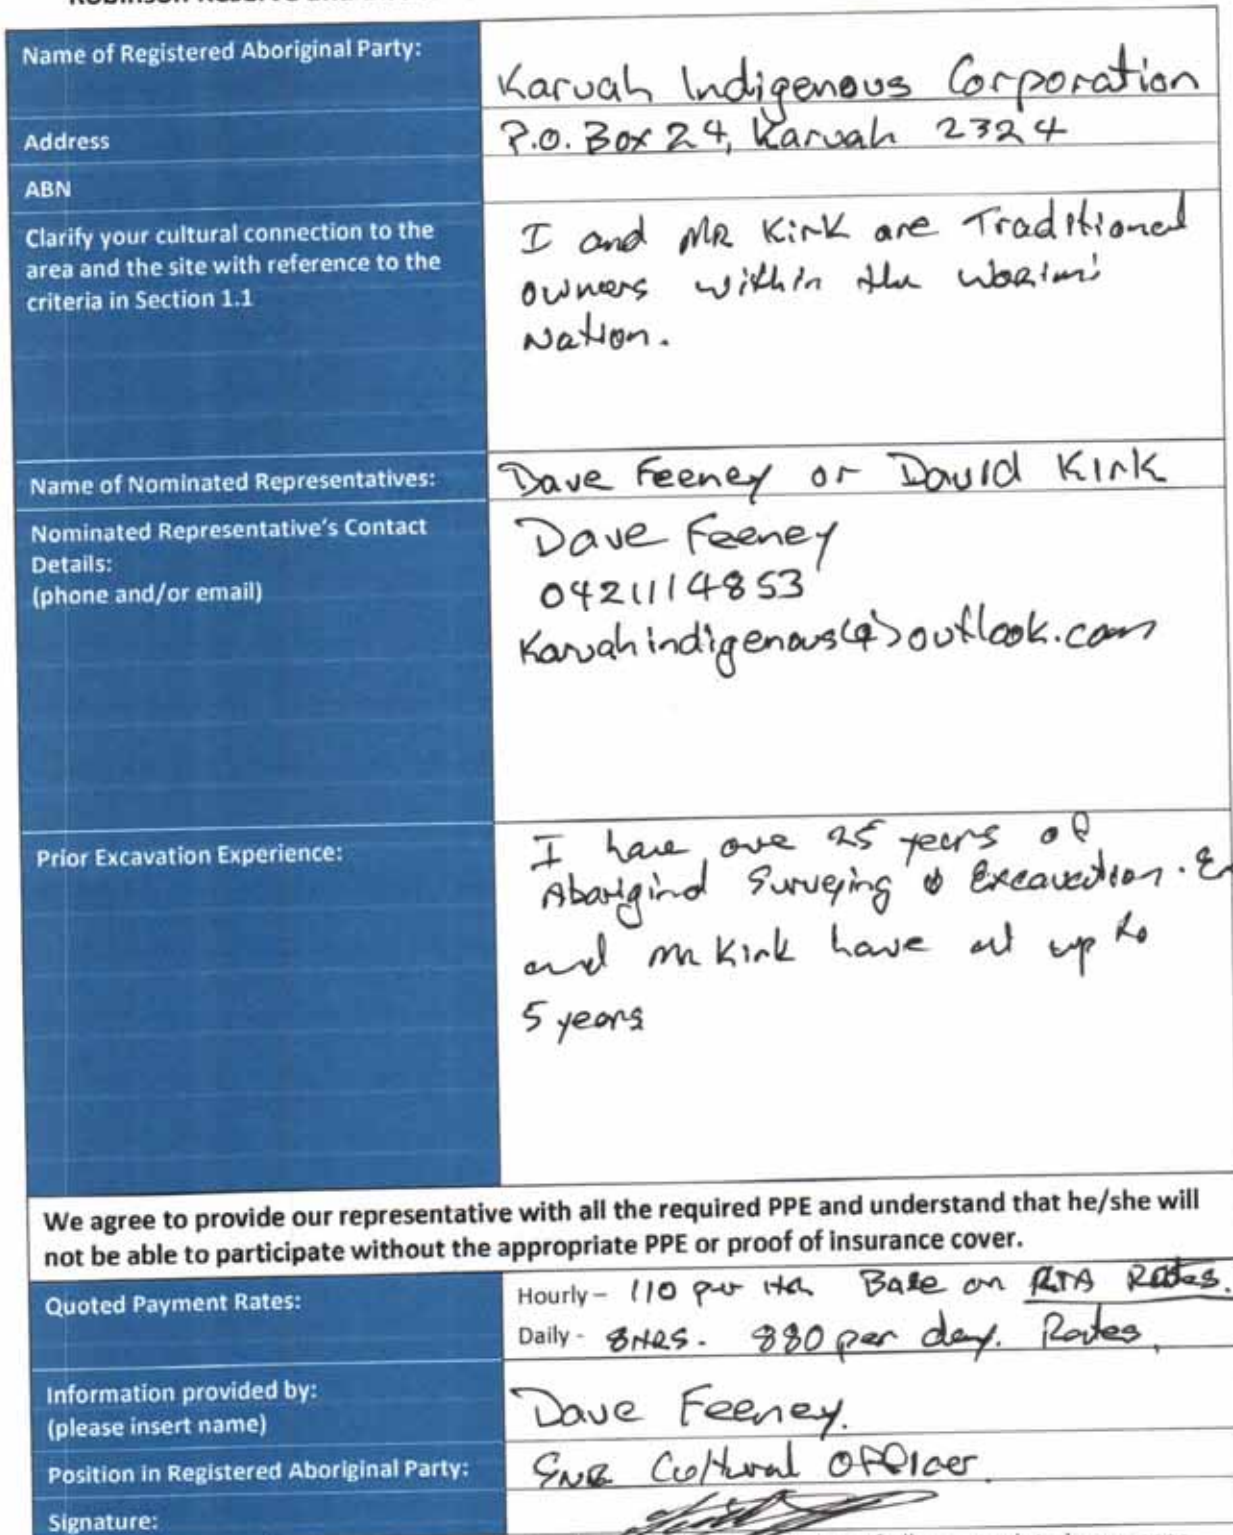 Name of Registered Aboriginal Party:
Karuah Indigenous Corporation
Address
P.O. Box 24, Karuah 2324
ABN
Clarify your cultural connection to the
area and the site with reference to the
criteria in Section 1.1
I and MR Kirk are Traditional
owners within the Worimi
Nation.
Name of Nominated Representatives:
Dave Feeney or David Kirk
Nominated Representative's Contact
Details:
(phone and/or email)
Dave Feeney
0421114853
Karuahindigenous@outlook.com
Prior Excavation Experience:
I have ove 25 years of
Aboriginal Surveying & Excavation.
and Mr Kirk have up to
5 years
We agree to provide our representative with all the required PPE and understand that he/she will
not be able to participate without the appropriate PPE or proof of insurance cover.
Quoted Payment Rates:
Hourly – 110 per Hr Base on RTA Rates.
Daily - 8HRS. 880 per day. Rates
Information provided by:
(please insert name)
Dave Feeney.
Position in Registered Aboriginal Party:
SNR Cultural Officer
Signature: